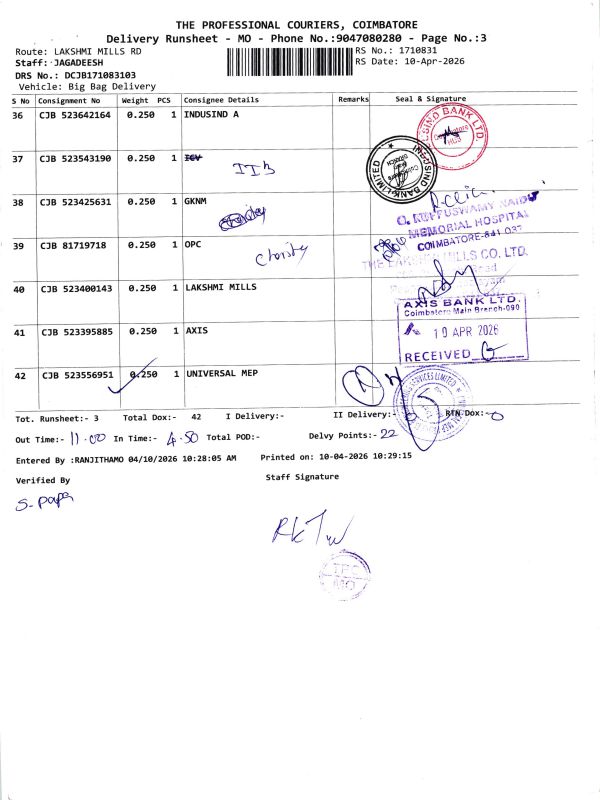 THE PROFESSIONAL COURIERS, COIMBATORE
Delivery Runsheet - MO - Phone No.:9047080280 - Page No.:3
Route: LAKSHMI MILLS RD
RS No.: 1710831
Staff: JAGADEESH
RS Date: 10-Apr-2026
DRS No.: DCJB171083103
Vehicle: Big Bag Delivery
S No Consignment No Weight PCS Consignee Details Remarks Seal & Signature
36 CJB 523642164 0.250 1 INDUSIND A
INDUSIND BANK LTD.
37 CJB 523543190 0.250 1 ICV
INDUSIND BANK LIMITED
38 CJB 523425631 0.250 1 GKNM
G. KUPPUSWAMY NAIDU
MEMORIAL HOSPITAL
COIMBATORE-641 037
39 CJB 81719718 0.250 1 OPC
Christy
THE LAKSHMI MILLS CO. LTD.
40 CJB 523400143 0.250 1 LAKSHMI MILLS
AXIS BANK LTD.
Coimbatore Main Branch-090
41 CJB 523395885 0.250 1 AXIS
10 APR 2026
RECEIVED
42 CJB 523556951 0.250 1 UNIVERSAL MEP
Tot. Runsheet:- 3 Total Dox:- 42 I Delivery:- II Delivery:- RTN Dox:- 0
Out Time:- 11.00 In Time:- 4.50 Total POD:- Delvy Points:- 22
Entered By :RANJITHAMO 04/10/2026 10:28:05 AM Printed on: 10-04-2026 10:29:15
Verified By Staff Signature
S. Papa
TPC
MO